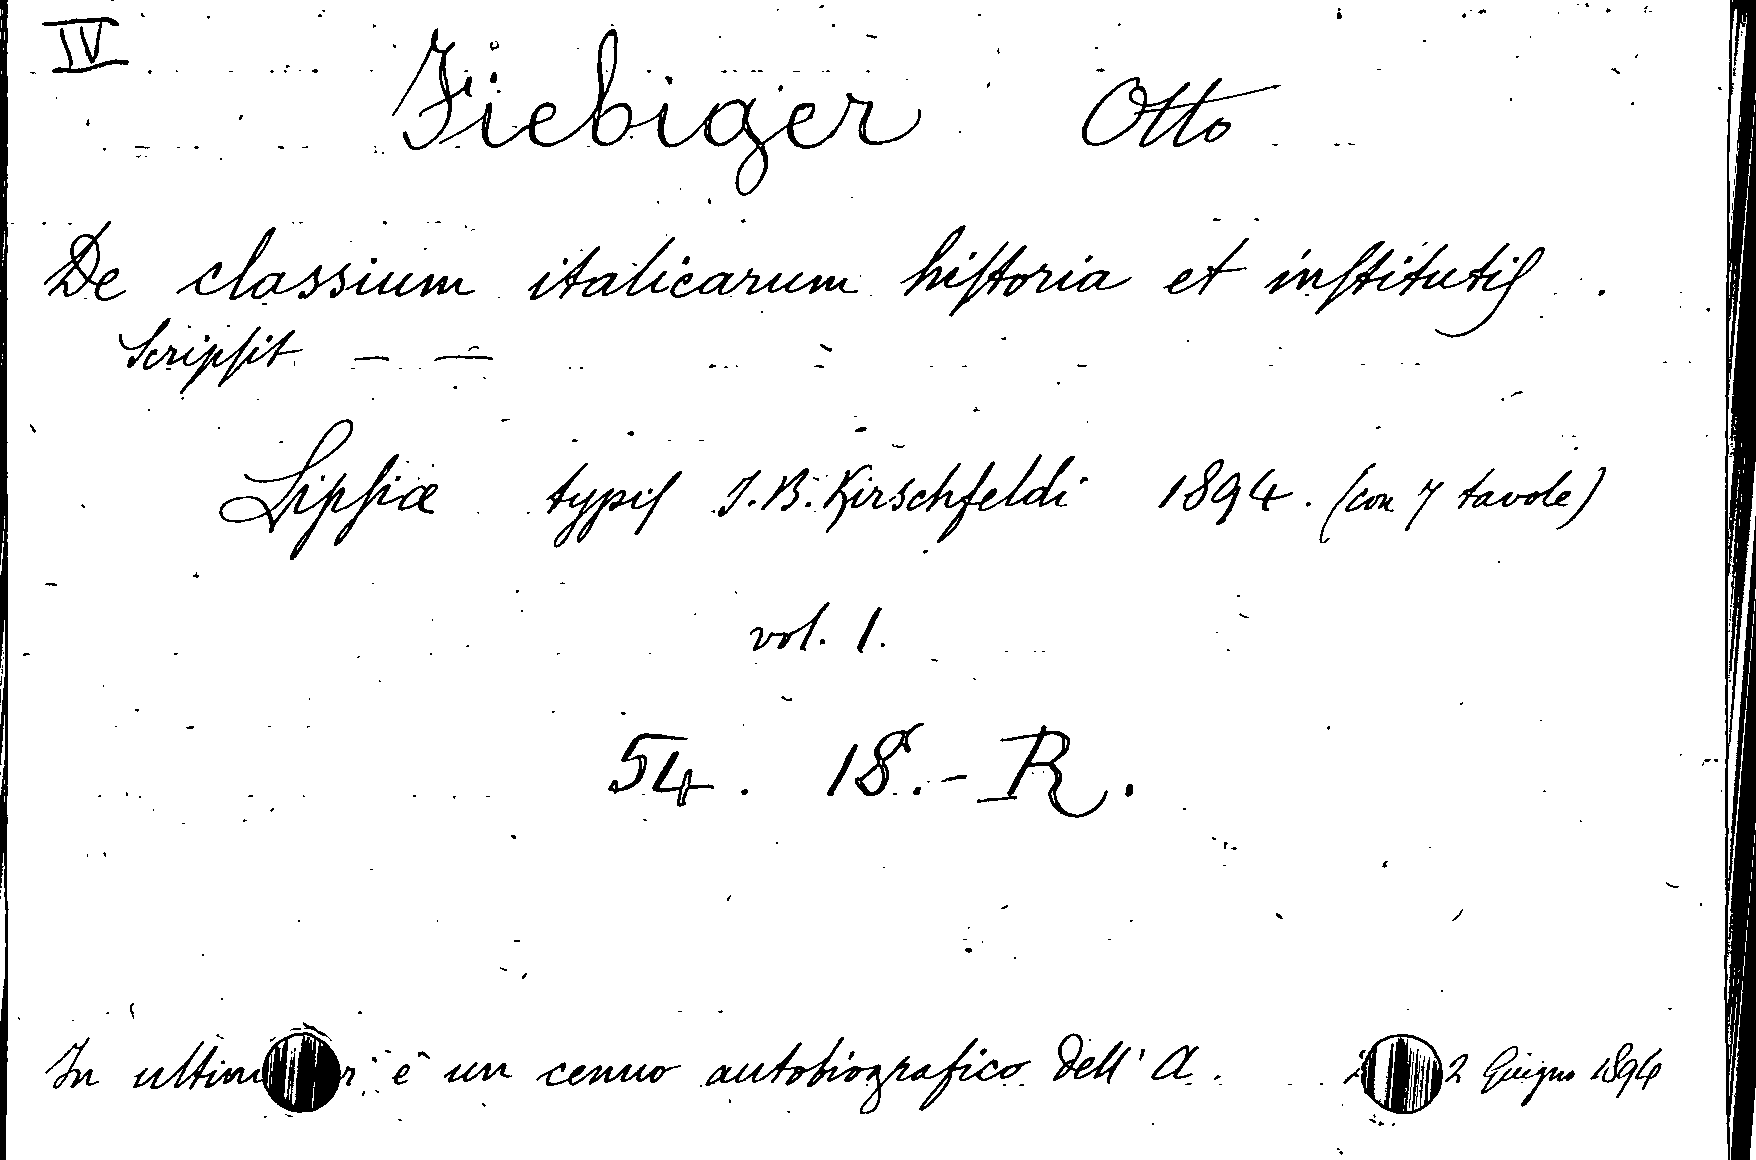 IV
Fiebiger Otto
De classium italicarum hiſtoria et inſtitutiſ .
Scripſit — —
Lipſiæ typiſ J. B. Hirschfeldi 1894. (con 7 tavole)
vol. 1.
54. 18.- R.
In è un cenno autobiografico dell' A. 2 Giugno 1896